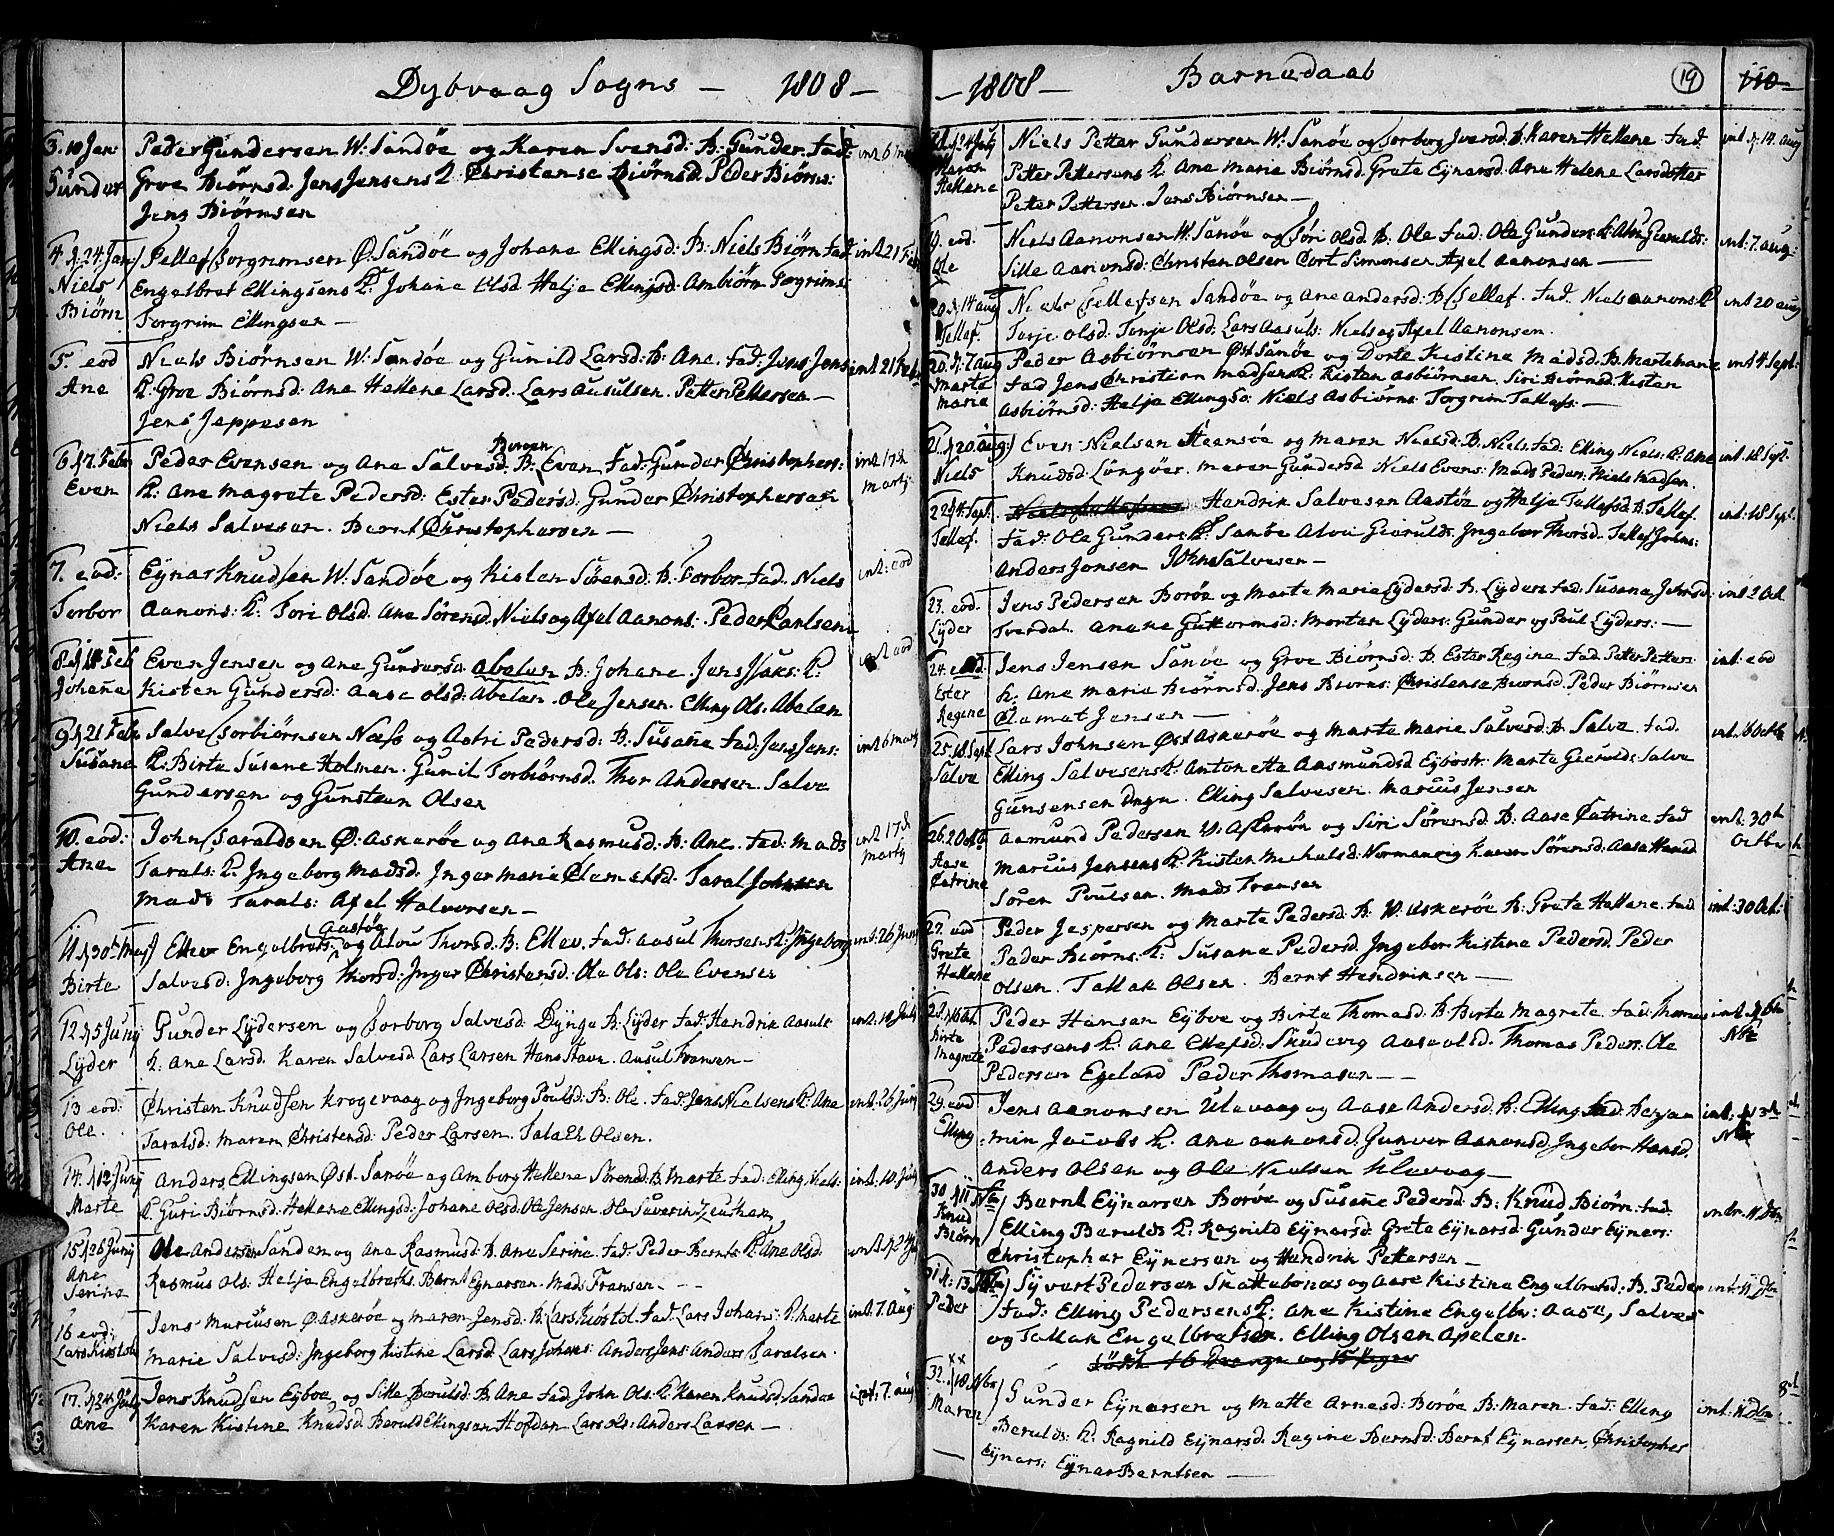 Dybvaag Sogns — 1808 —
3. 10 Jan: Peder Gundersen W: Sandöe og Karen Svensd: B: Gunder. fad:
Gunder Groe Biörnsd: Jens Jensens K: Christense Biörnsd: Peder Biörns:
Jens Biörnsen
4. d 24 Jan: Tellef Torgrimsen Ö. Sandöe og Johane Ellingsd: B: Niels Biörn fad: int 21 Feb
Niels Engelbret Ellingsens K: Johane Olsd Helje Ellingsd: Ambiörn Torgrims:
Biörn Torgrim Ellingsen —
5. eod Niels Biörnsen W: Sandöe og Gunild Larsd: B: Ane. fad: Jens Jens: int 21 Feb
Ane K: Groe Biörnsd: Ane Hellene Larsd: Lars Ausulsen. Petter Pettersen —
Jens Jeppesen
6. d 7. Feb: Peder Evensen og Ane Salvesd: Boröen B: Even fad: Gunder Christophers: int 17de
Even K: Ane Magrete Pedersd: Ester Pedersd: Gunder Christophersen Martj
Niels Salvesen. Bernt Christophersen —
7. eod: Eynar Knudsen W: Sandöe og Kisten Sörensd: B: Torbor fad. Niels int: eod
Torbor Aanons: K: Tori Olsd. Ane Sörensd. Niels og Axel Aanons: Peder Carlsen
8. d 14 Feb Even Jensen og Ane Gundersd: Abelen B: Johane Jens Isaks: K: int eod
Johane Kisten Gundersd: Aase Olsd: Abelen. Ole Jensen. Elling Ols: Abelen
9. d 21 Feb: Salve Torbiörnsen Næss og Astri Pedersd: B: Susane fad: Jens Jens: int 6 Martj
Susane K: Birte Susane Holmen. Gunil Torbiörnsd. Thor Andersen. Salve
Gundersen og Gunsteen Olsen
10. eod: John Taraldsen Ö: Askeröe og Ane Rasmusd: B: Ane. fad: Mads int 17de
Ane Tarals: K: Ingeborg Madsd. Inger Marie Clemetsd. Taral Johnsen Martj
Mads Tarals: Axel Halvorsen —
11. d 30te Maj Ellev Engelbrets: Aastöe og Alou Thorsd: B: Ellev. fad: Aasul Thorsens K: Ingeborg int: 26 Junj
Birte Salvesd: Ingeborg Thorsd: Inger Christensd: Ole Ols: Ole Evensen
12. d 5 Junj Gunder Lydersen og Torborg Salvesd: Dynge B: Lyder fad: Hendrik Aasuls int: 10 Julj
Lyder K: Ane Larsd. Karen Salvesd Lars Larsen Hans Stavn. Ausul Fransen —
13 eod: Christen Knudsen Krogevaag og Ingeborg Poulsd: B: Ole. fad: Jens Nielsens K: Ane int. 26 Junj
Ole. Taralsd: Maren Christensd: Peder Larsen. Talach Olsen.
14. d 12 Junj Anders Ellingsen Öst. Sanöe og Amborg Hellene Sörensd: B: Marte fad: Elling Niels: int: 10 Julj
Marte K: Guri Biörnsd: Hellene Ellingsd: Johane Olsd: Ole Jensen. Ole Saverin Zeuthen
15. d 26 Junj Ole Andersen Sanden og Ane Rasmusd: B. Ane Serine. fad: Peder Bernts: K: Ane Olsd: int d 24 Jul
Ane Rasmus Ols: Helje Engelbreths. Bernt Eynersen. Mads Fransen —
Serine
16 eod: Jens Marcusen Ö Askeröe og Maren Jensd: B: Lars Kiöstol fad. Lars Johans: K. Marte int. 7. Aug
Lars Kiöstol Marie Salvesd: Ingeborg Kistine Larsd Lars Johns: Anders Jens: Anders Taralsen.
17. d 24 Julj Jens Knudsen Eyboe og Sille Beruls d: B. Ane fad: John Ols. K: Karen Knudsd: Sandöe int: 7. aug
Ane Karen Kistine Knudsd: Beruld Ellingsen Hofden Lars Ols: Anders Larsen —

— 1808 — Barnedaab 19 110
18. d 24 Julj Niels Petter Gundersen W: Sanöe og Torborg Iversd. B. Karen Hellene fad. int. d. 14. aug
Karen Petter Pettersens K: Ane Marie Biörnsd. Grete Eynarsd. Ane Helene Larsdotter
Hellene Petter Pettersen. Jens Biörnsen —
19. eod. Niels Aanonsen W: Sanöe og Siri Olsd. B. Ole fad: Ole Gunders: K. Alou Gierulds: int. 7. aug:
Ole Sille Aanonsd: Christen Olsen Cort Simonsen Axel Aanonsen —
20. d. 14 aug Niels Tellefsen Sandöe og Ane Andersd: B. Tellef. fad. Niels Aanons: K int 20 aug
Tellef. Terje Olsd: Tonje Olsd: Lars Aasuls: Niels og Axel Aanonsen.
20. d. 7. aug Peder Asbiörnsen Öst Sanöe og Dorte Kistine Madsd. B. Marte Marie int 4 Sept:
Marte fad Jens Christian Madsens K: Kisten Asbiörnsen. Siri Biörnsd. Kisten
Marie Asbiörnsd: Helje Ellingsd: Niels Asbiörns: Torgrim Tallefs: —
21. d 20 aug: Even Nielsen Steensöe og Maren Nielsd: B. Niels. fad: Elling Niels: K: Ane int. 18 Sept
Niels Knudsd: Löngöer. Maren Gundersd Niels Evens: Mads Peders: Niels Madsen.
22 d 4 Sept. Hendrik Salvesen Aastöe og Helje Tellefsd: B. Tellef. int: 18 Sept.
Tellef. fad: Ole Gunders: K: Sanöe Alou Gieruldsd: Ingebor Thorsd. Tellef Johns:
Anders Jonsen John Salvesen —
23. eod. Jens Pedersen Boröe og Marte Marie Lydersd: B. Lyder fad: Susane Johnsd: int 2 Oct
Lyder Tverdal. Anene Guttormsd: Morten Lyders: Gunder og Poul Lyders: —
24. eod. Jens Jensen Sanöe og Groe Biörnsd: B. Ester Regine fad. Petter Petters: int: eod
Ester K. Ane Marie Biörnsd. Jens Biörns: Christense Biörnsd. Peder Biörnsen
Regine Clamet Jensen —
25. 18 Sept Lars Johnsen Öst Askeröe og Marte Marie Salvesd: B. Salve. fad. int. 16 Octb
Salve Elling Salvesens K: Antonetta Aasmundsd Eybost: Marte Gierulds: Salve
Gunsensen Dngn. Elling Salvesen. Marcus Jensen
26. 2 Octb Aamund Pedersen W: Askeröe og Siri Sörensd: B. Aase Catrine fad int. 30te
Aase Marcus Jensens K: Kisten Michelsd: Normanvig Karen Sörensd: Aase Hansd Octbr
Catrine Sören Poulsen. Mads Fransen
27. eod Peder Jespersen og Marte Pedersd: B. W. Askeröe B: Grete Hellene. fad int. 30 Oct.
Grete Peder Biörns: K: Susane Pedersd. Ingebor Kistine Pedersd. Peder
Hellene Olsen. Tallak Olsen. Bernt Hendriksen —
28. d 16 Oct. Peder Hansen Eyboe og Birte Thomasd: B. Birte Magrete fad. Thomas int.
Birte Pedersens K: Ane Ellefsd: Skudevig Aase Olsd. Thomas Peders: Ole
Magrete Pedersen Egeland Peder Thomasen —
29. eod Jens Aanonsen Ulevaag og Aase Andersd: B: Elling. fad. Benja int. 13de
Elling: min Jacobs K: Ane Aanonsd. Gunver Aanonsd. Ingebor Hansd.
Anders Olsen og Ole Nielsen Klevaag —
30. d 11 Nbr Bernt Eynarsen Boröe og Susane Pedersd: B: Knud Biörn. fad. int. 11. Dbr
Knud Elling Berulds K: Ragnild Eynarsd: Grete Eynarsd: Gunder Eyners:
Biörn Christopher Eynersen og Hendrik Pettersen —
31 d. 13 Nbr Syvert Pedersen Skottebonæs og Aase Kistine Engelbretsd: B. Peder int. 11 Dbr
Peder fad: Elling Pedersens K: Ane Kistine Engelbr: Aase, Salves
og Tallak Engelbretsen. Elling Olsen Apelen.
födte 16 Drenge og 15 Piger
32. d 18 Nbr Gunder Eynersen og Mette Arnesd: Boröe B: Maren. fad: Elling int. 11 Dbr
Maren Berulds: K: Ragnild Eynarsd. Regine Berntsd: Bernt Eynarsen, Christopher
Eynars: Eynar Berntsen —